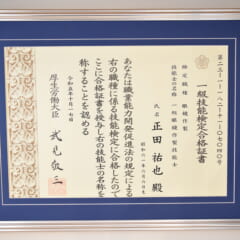 一級技能検定合格証書
検定職種 眼鏡作製
技能士の名称 一級眼鏡作製技能士
氏名 正田祐也殿
あなたは職業能力開発促進法の規定による
右の職種に係る技能検定に合格したので
ここに合格証書を授与し右の技能士の名称を
称することを認める
令和五年十月一七日
厚生労働大臣 武見敬三